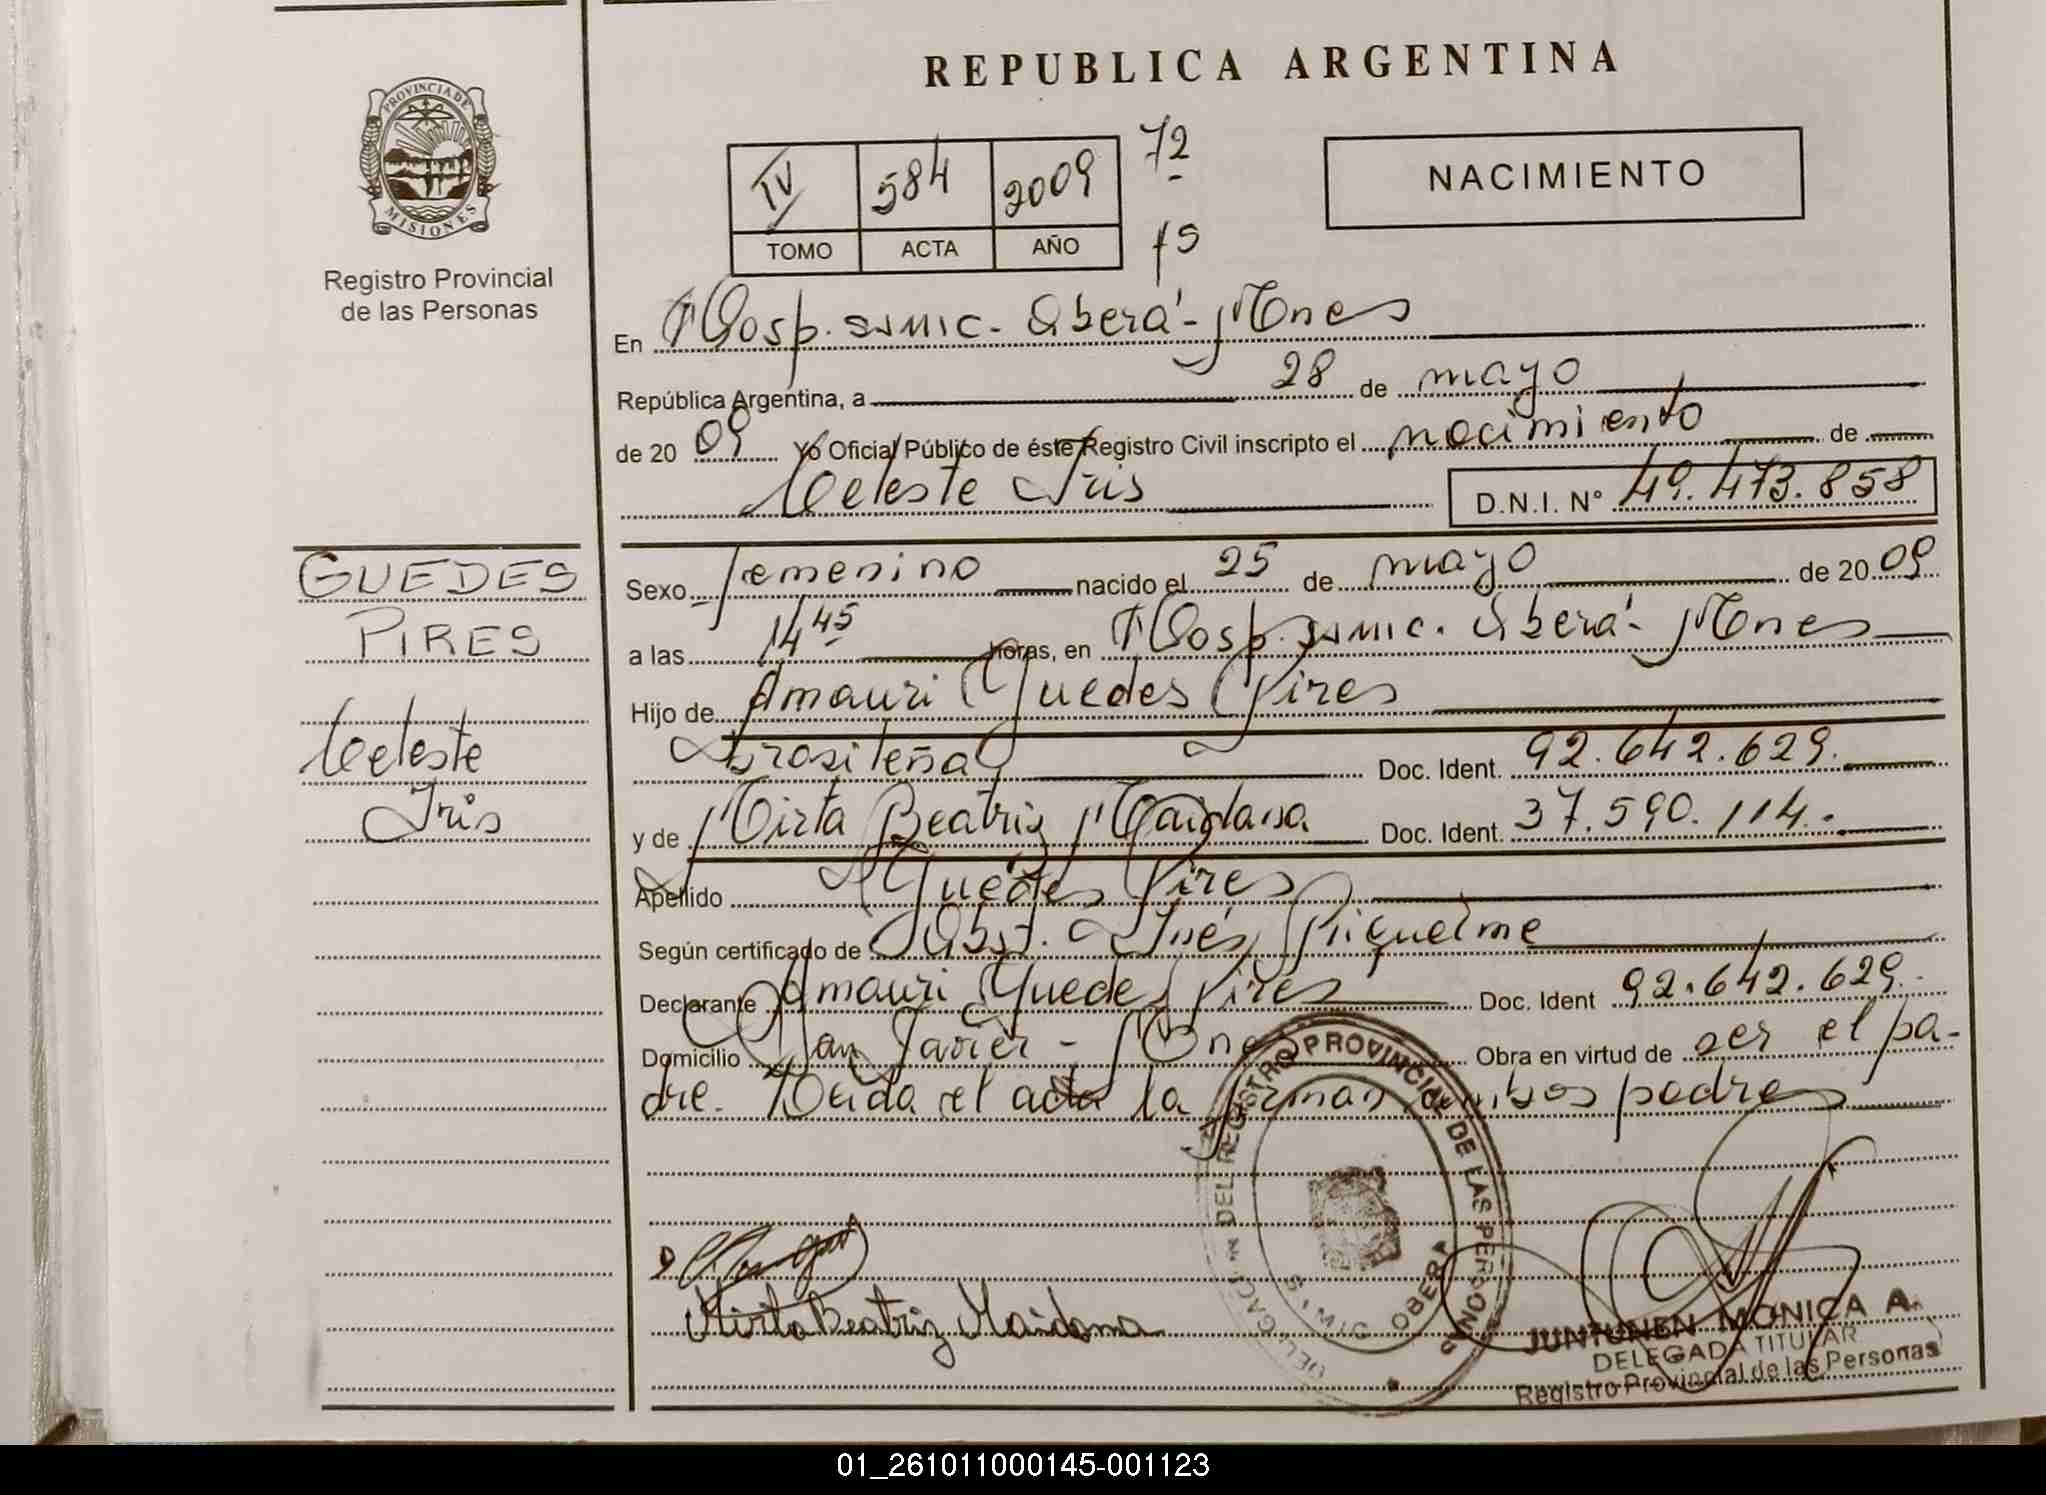 REPUBLICA ARGENTINA
PROVINCIA DE
MISIONES
Registro Provincial
de las Personas
IV 584 2009 72
TOMO ACTA AÑO 75
NACIMIENTO
En Hosp. SAMIC. Oberá - Mnes
República Argentina, a 28 de mayo
de 20 09 Yo Oficial Público de éste Registro Civil inscripto el nacimiento de
Celeste Iris D.N.I. N° 49.473.858
GUEDES
PIRES
Celeste
Iris
Sexo femenino nacido el 25 de mayo de 20 09
a las 14 45 horas, en Hosp. SAMIC. Oberá - Mnes
Hijo de Amauri Guedes Pires
brasileña Doc. Ident. 92.642.629.
y de Mirta Beatriz Maidana Doc. Ident. 37.590.114.
Apellido Guedes Pires
Según certificado de Obst. Inés Riquelme
Declarante Amauri Guedes Pires Doc. Ident 92.642.629.
Domicilio San Javier - Mnes Obra en virtud de ser el pa-
dre. Leida el acta la firman ambos padres
DELEGACION DEL REGISTRO PROVINCIAL DE LAS PERSONAS
OBERA
Mirta Beatriz Maidana
JUNTUNEN MONICA A.
DELEGADA TITULAR
Registro Provincial de las Personas
01_261011000145-001123